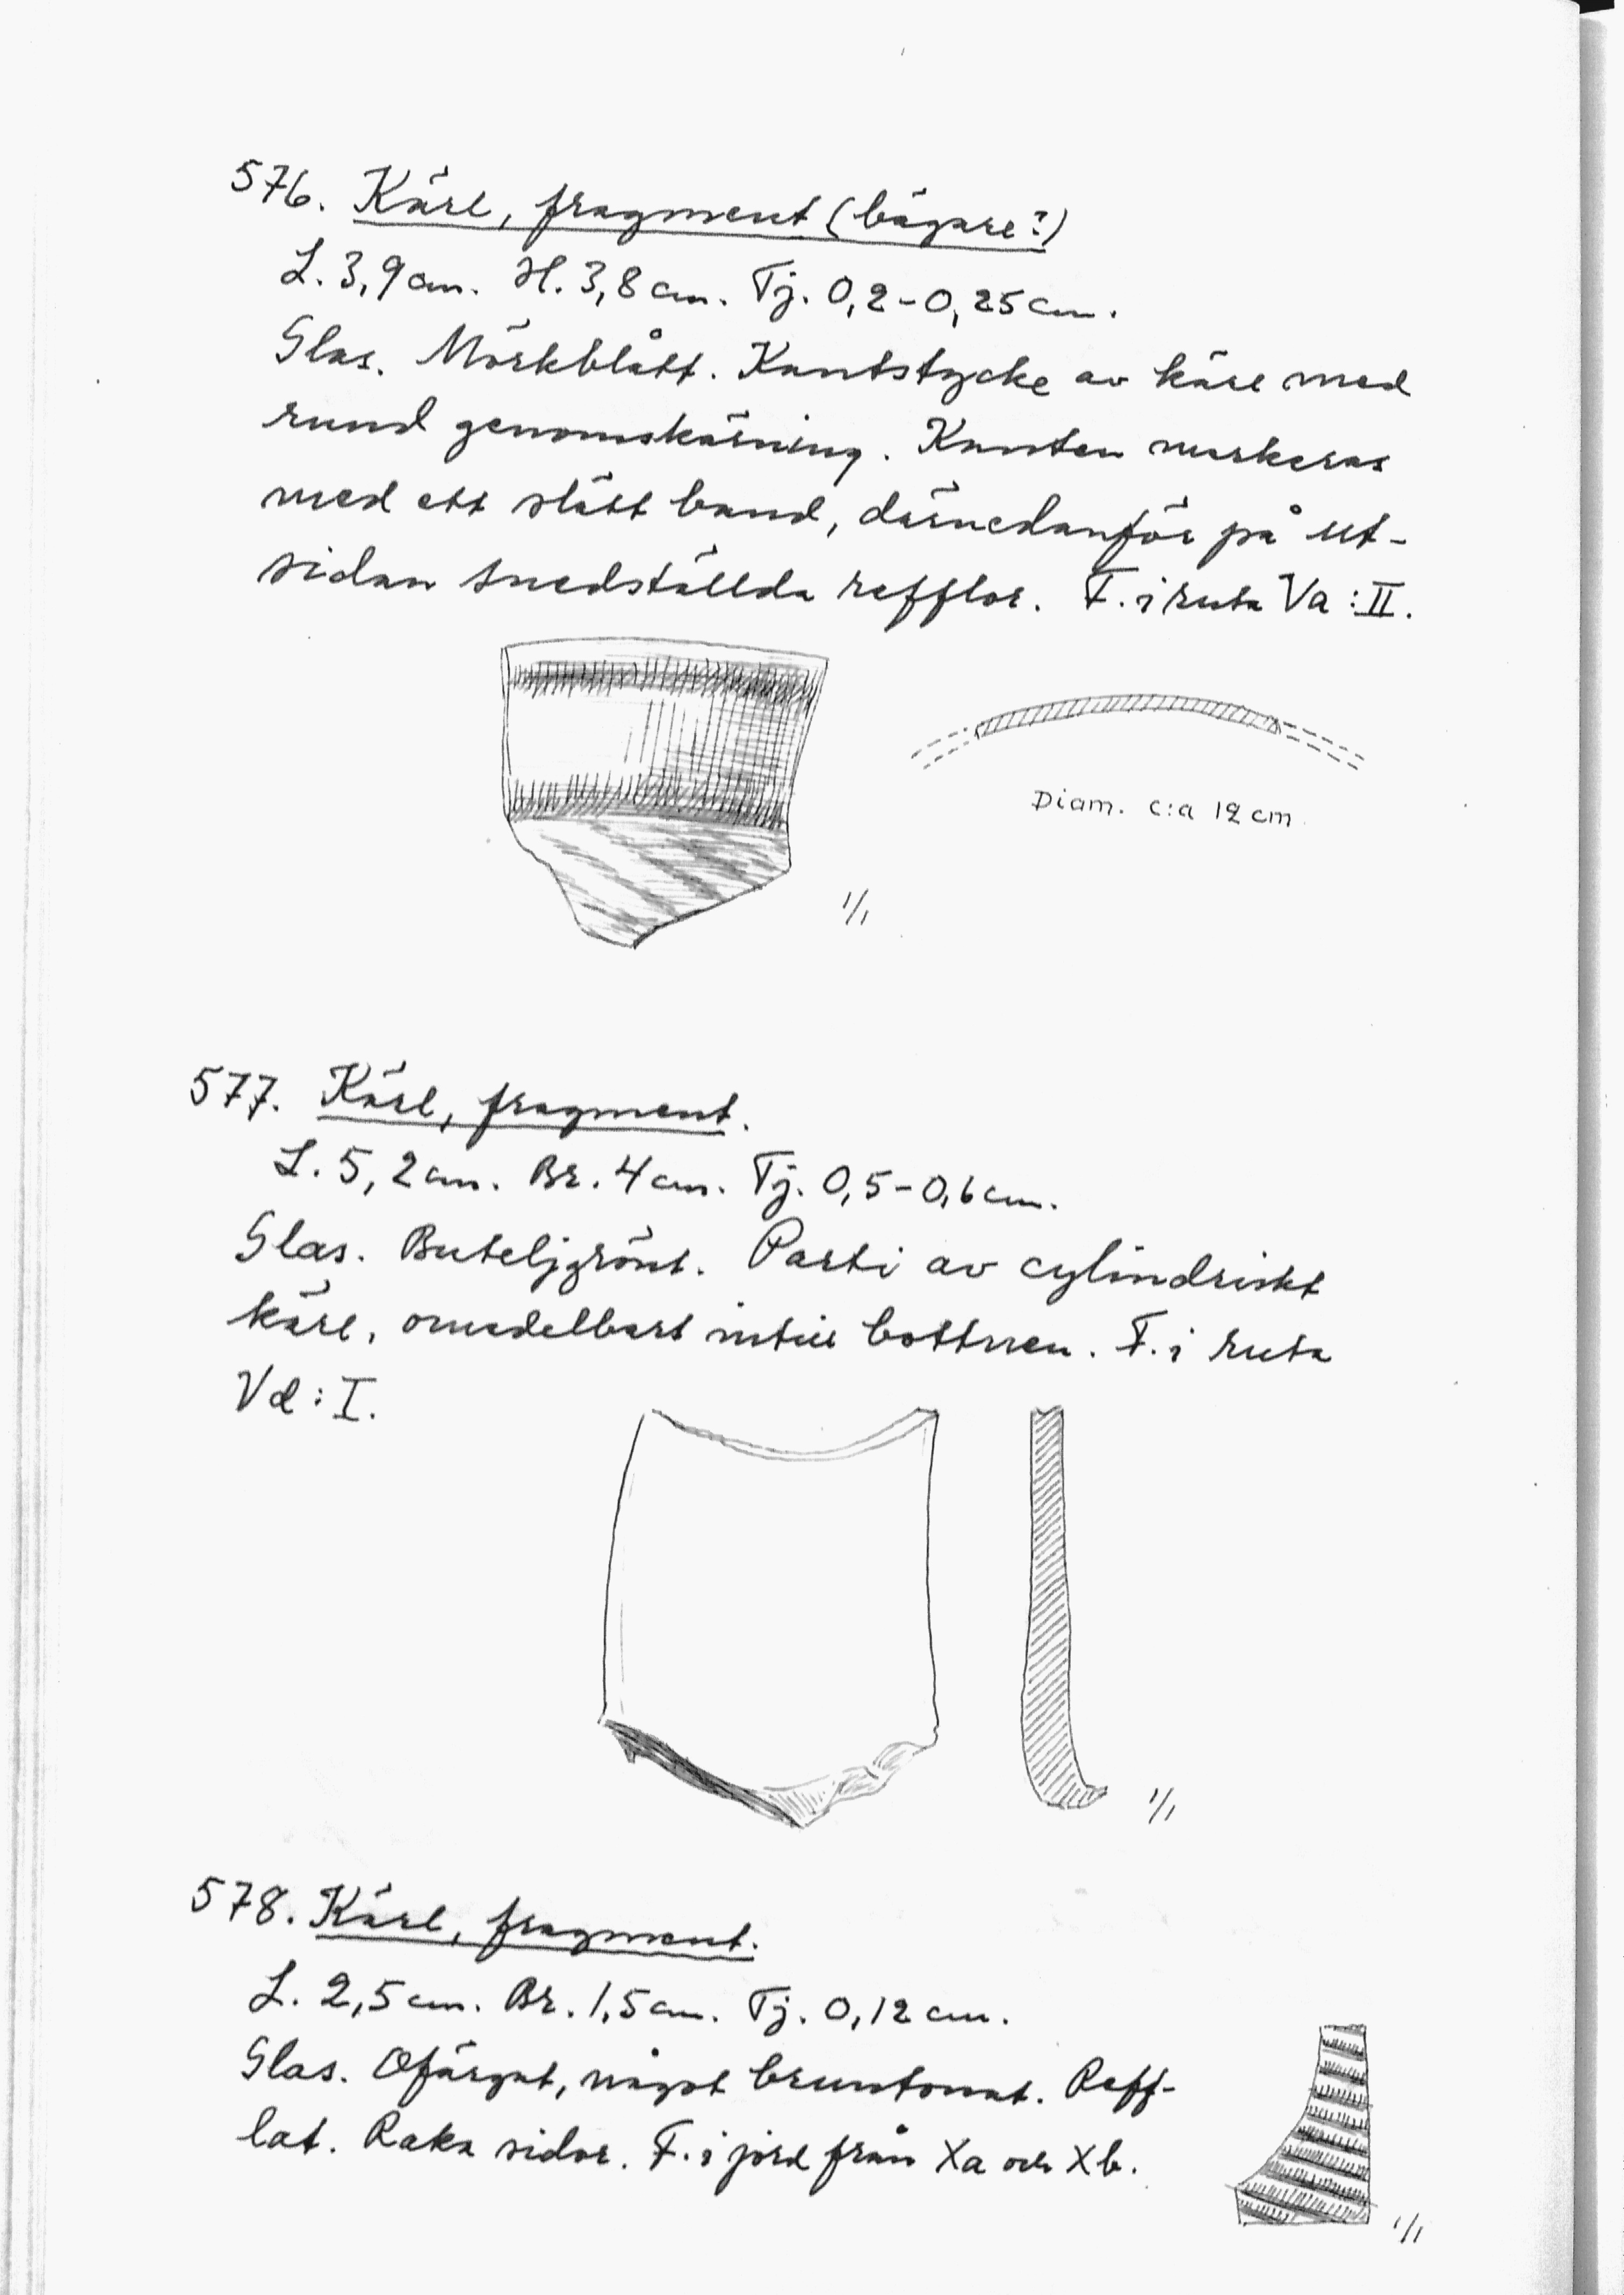 576. Kärl, fragment (bägare?)
L. 3,9 cm. H. 3,8 cm. Tj. 0,2-0,25 cm.
Glas. Mörkblått. Kantstycke av kärl med
rund genomskärning. Kanten markeras
med ett slätt band, därnedanför på ut-
sidan snedställda refflor. F. i ruta Va:II.
Diam. c:a 12 cm.
1/1
577. Kärl, fragment.
L. 5,2 cm. Br. 4 cm. Tj. 0,5-0,6 cm.
Glas. Buteljgrönt. Parti av cylindriskt
kärl, omedelbart intill bottnen. F. i ruta
Vd:I.
1/1
578. Kärl, fragment.
L. 2,5 cm. Br. 1,5 cm. Tj. 0,12 cm.
Glas. Ofärgat, något bruntonat. Reff-
lat. Raka sidor. F. i jord från Xa och Xb.
1/1